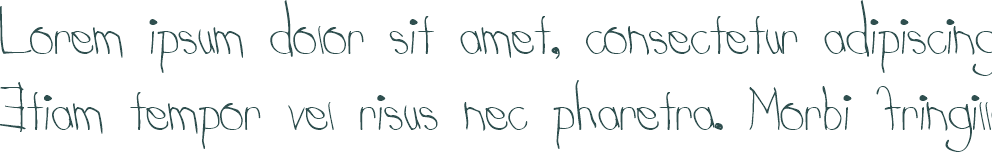 Lorem ipsum dolor sit amet, consectetur adipiscing
Etiam tempor vel risus nec pharetra. Morbi fringill